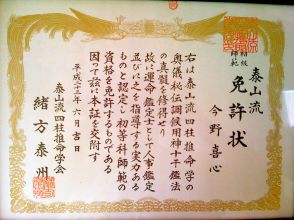 初等科
師範
泰山流
免許状
今野喜心
右は泰山流四柱推命学の
奥儀秘伝調候用神十干鑑法
の真髄を修得せり
故に運命鑑定士として人事鑑定
並びに之を指導する実力ある
ものと認定し初等科師範の
資格を免許するものである
因って茲に本証を交附す
平成二十三年六月吉日
泰山流四柱推命学会
緒方泰州